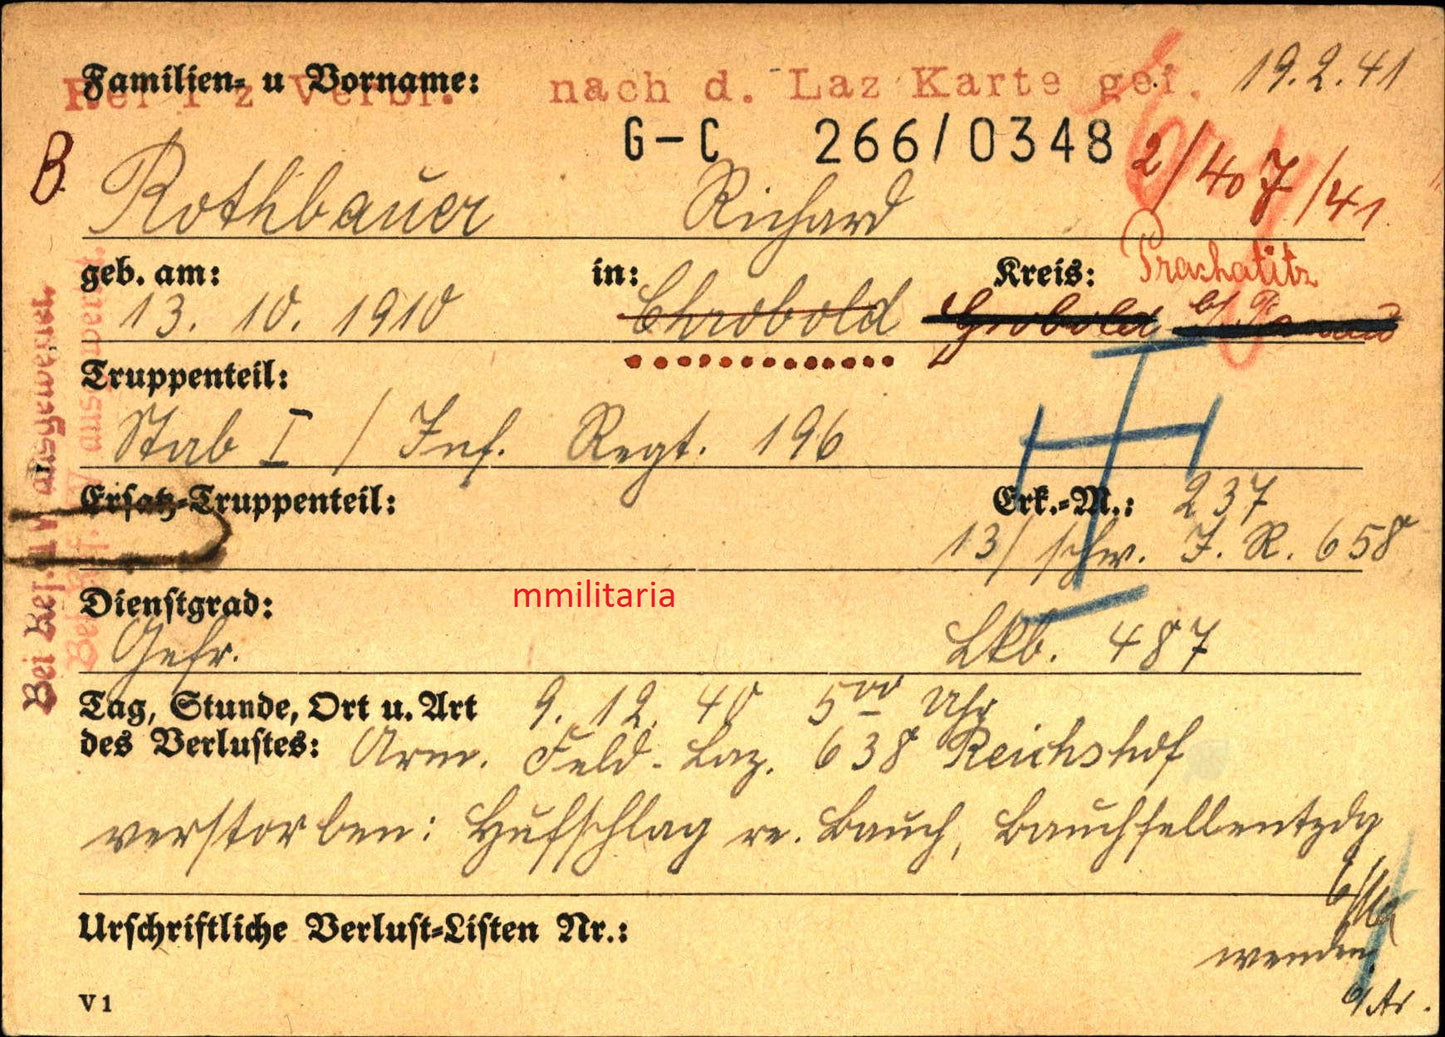 Familien- u Vorname: nach d. Laz Karte gef. 19.2.41
G-C 266/0348
B. Rothbauer Richard 2/407/41
geb. am: in: Kreis: Prachatitz
13. 10. 1910 Chrobold Grobold
Truppenteil:
Stab I / Inf. Regt. 196
Ersatz-Truppenteil: Erk.-M.: 237
13/ schw. J. R. 658
Dienstgrad:
Gefr. Lkb. 487
mmilitaria
Tag, Stunde, Ort u. Art 9. 12. 40 5⁰⁰ Uhr
des Verlustes: Arm. Feld-Laz. 638 Reichshof
verstorben: Hufschlag re. Bauch, Bauchfellentzdg
Urschriftliche Verlust-Listen Nr.:
wenden
V 1
Bei Ref. ausgewertet.